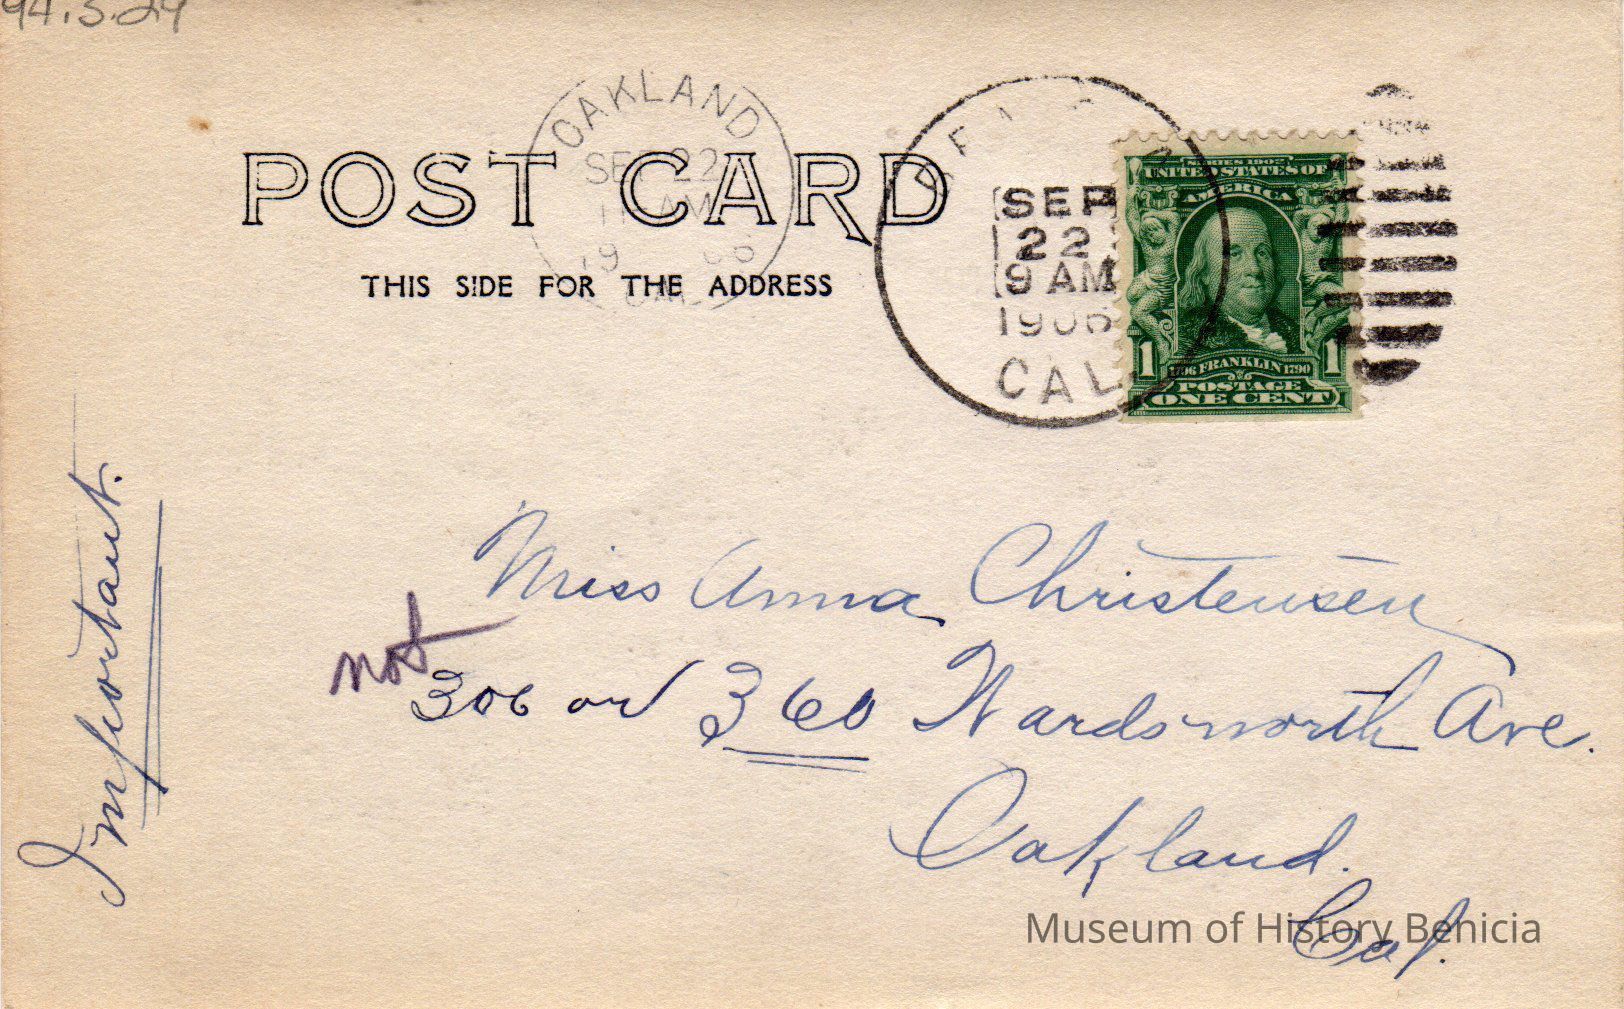 94.5.29
OAKLAND
SEP 22
11 AM
1906
CAL.
POST CARD
THIS SIDE FOR THE ADDRESS
SEP
22
9 AM
1906
CAL.
SERIES 1902
UNITED STATES OF
AMERICA
1 1
1706 FRANKLIN 1790
POSTAGE
ONE CENT
Important.
Miss Anna Christensen
not
306 or 360 Wardsworth Ave.
Oakland.
Cal.
Museum of History Benicia